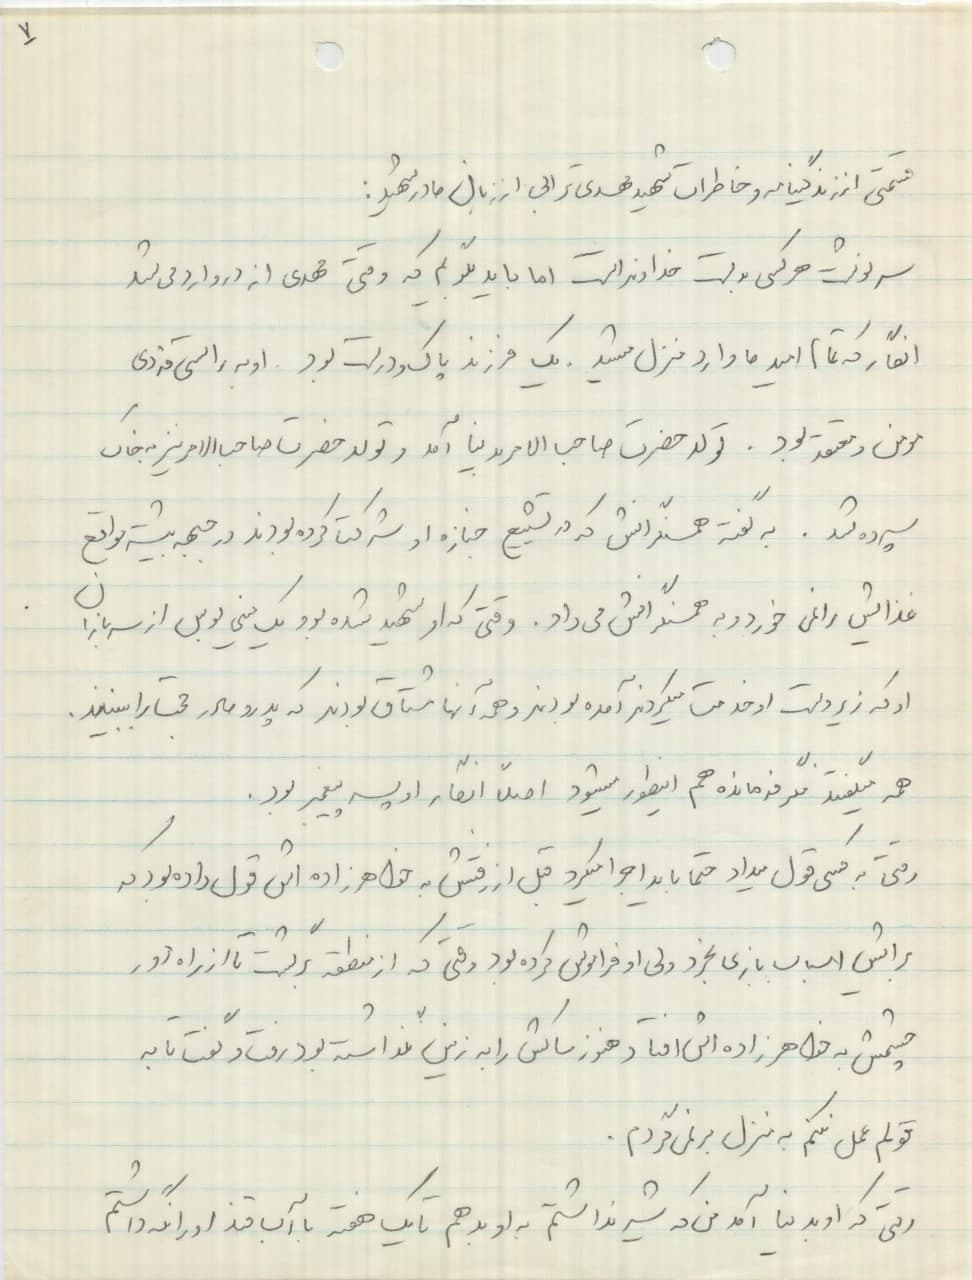 ۷
قسمتی از زندگینامه و خاطرات شهید مهدی ترابی از زبان مادر شهید:
سرنوشت هر کسی بدست خداوند است اما باید بگویم که وقتی مهدی از در وارد می شد
انگار که تمام امید ما وارد منزل میشد. یک فرزند پاک و درست بود. او به راستی فردی
مومن و معتقد بود. تولد حضرت صاحب الامر بدنیا آمد و تولد حضرت صاحب الامر نیز به خاک
سپرده شد. به گفته همسنگرانش که در تشییع جنازه او شرکت کرده بودند در جبهه بیشتر مواقع
غذایش را نمی خورد و به همسنگرانش می داد. وقتی که او شهید شده بود یک مینی بوس از سربازان
او که زیر دست او خدمت میکردند آمده بودند و همه آنها مشتاق بودند که پدر و مادر را ببینند.
همه میگفتند مگر فرمانده هم اینطور میشود اصلاً انگار او پسر پیغمبر بود.
وقتی به کسی قول میداد حتما باید اجرا میکرد قبل از رفتنش به خواهرزاده اش قول داده بود که
برایش اسباب بازی بخرد ولی او فراموش کرده بود وقتی که از منطقه برگشت تا از راه دور
چشمش به خواهرزاده اش افتاد هنوز ساکش را به زمین نگذاشته بود رفت و گفت تا به
قولم عمل نکنم به منزل برنمی گردم.
وقتی که او بدنیا آمد من که شیر نداشتم به او بدهم تا یک هفته با آب قند او را نگه داشتم